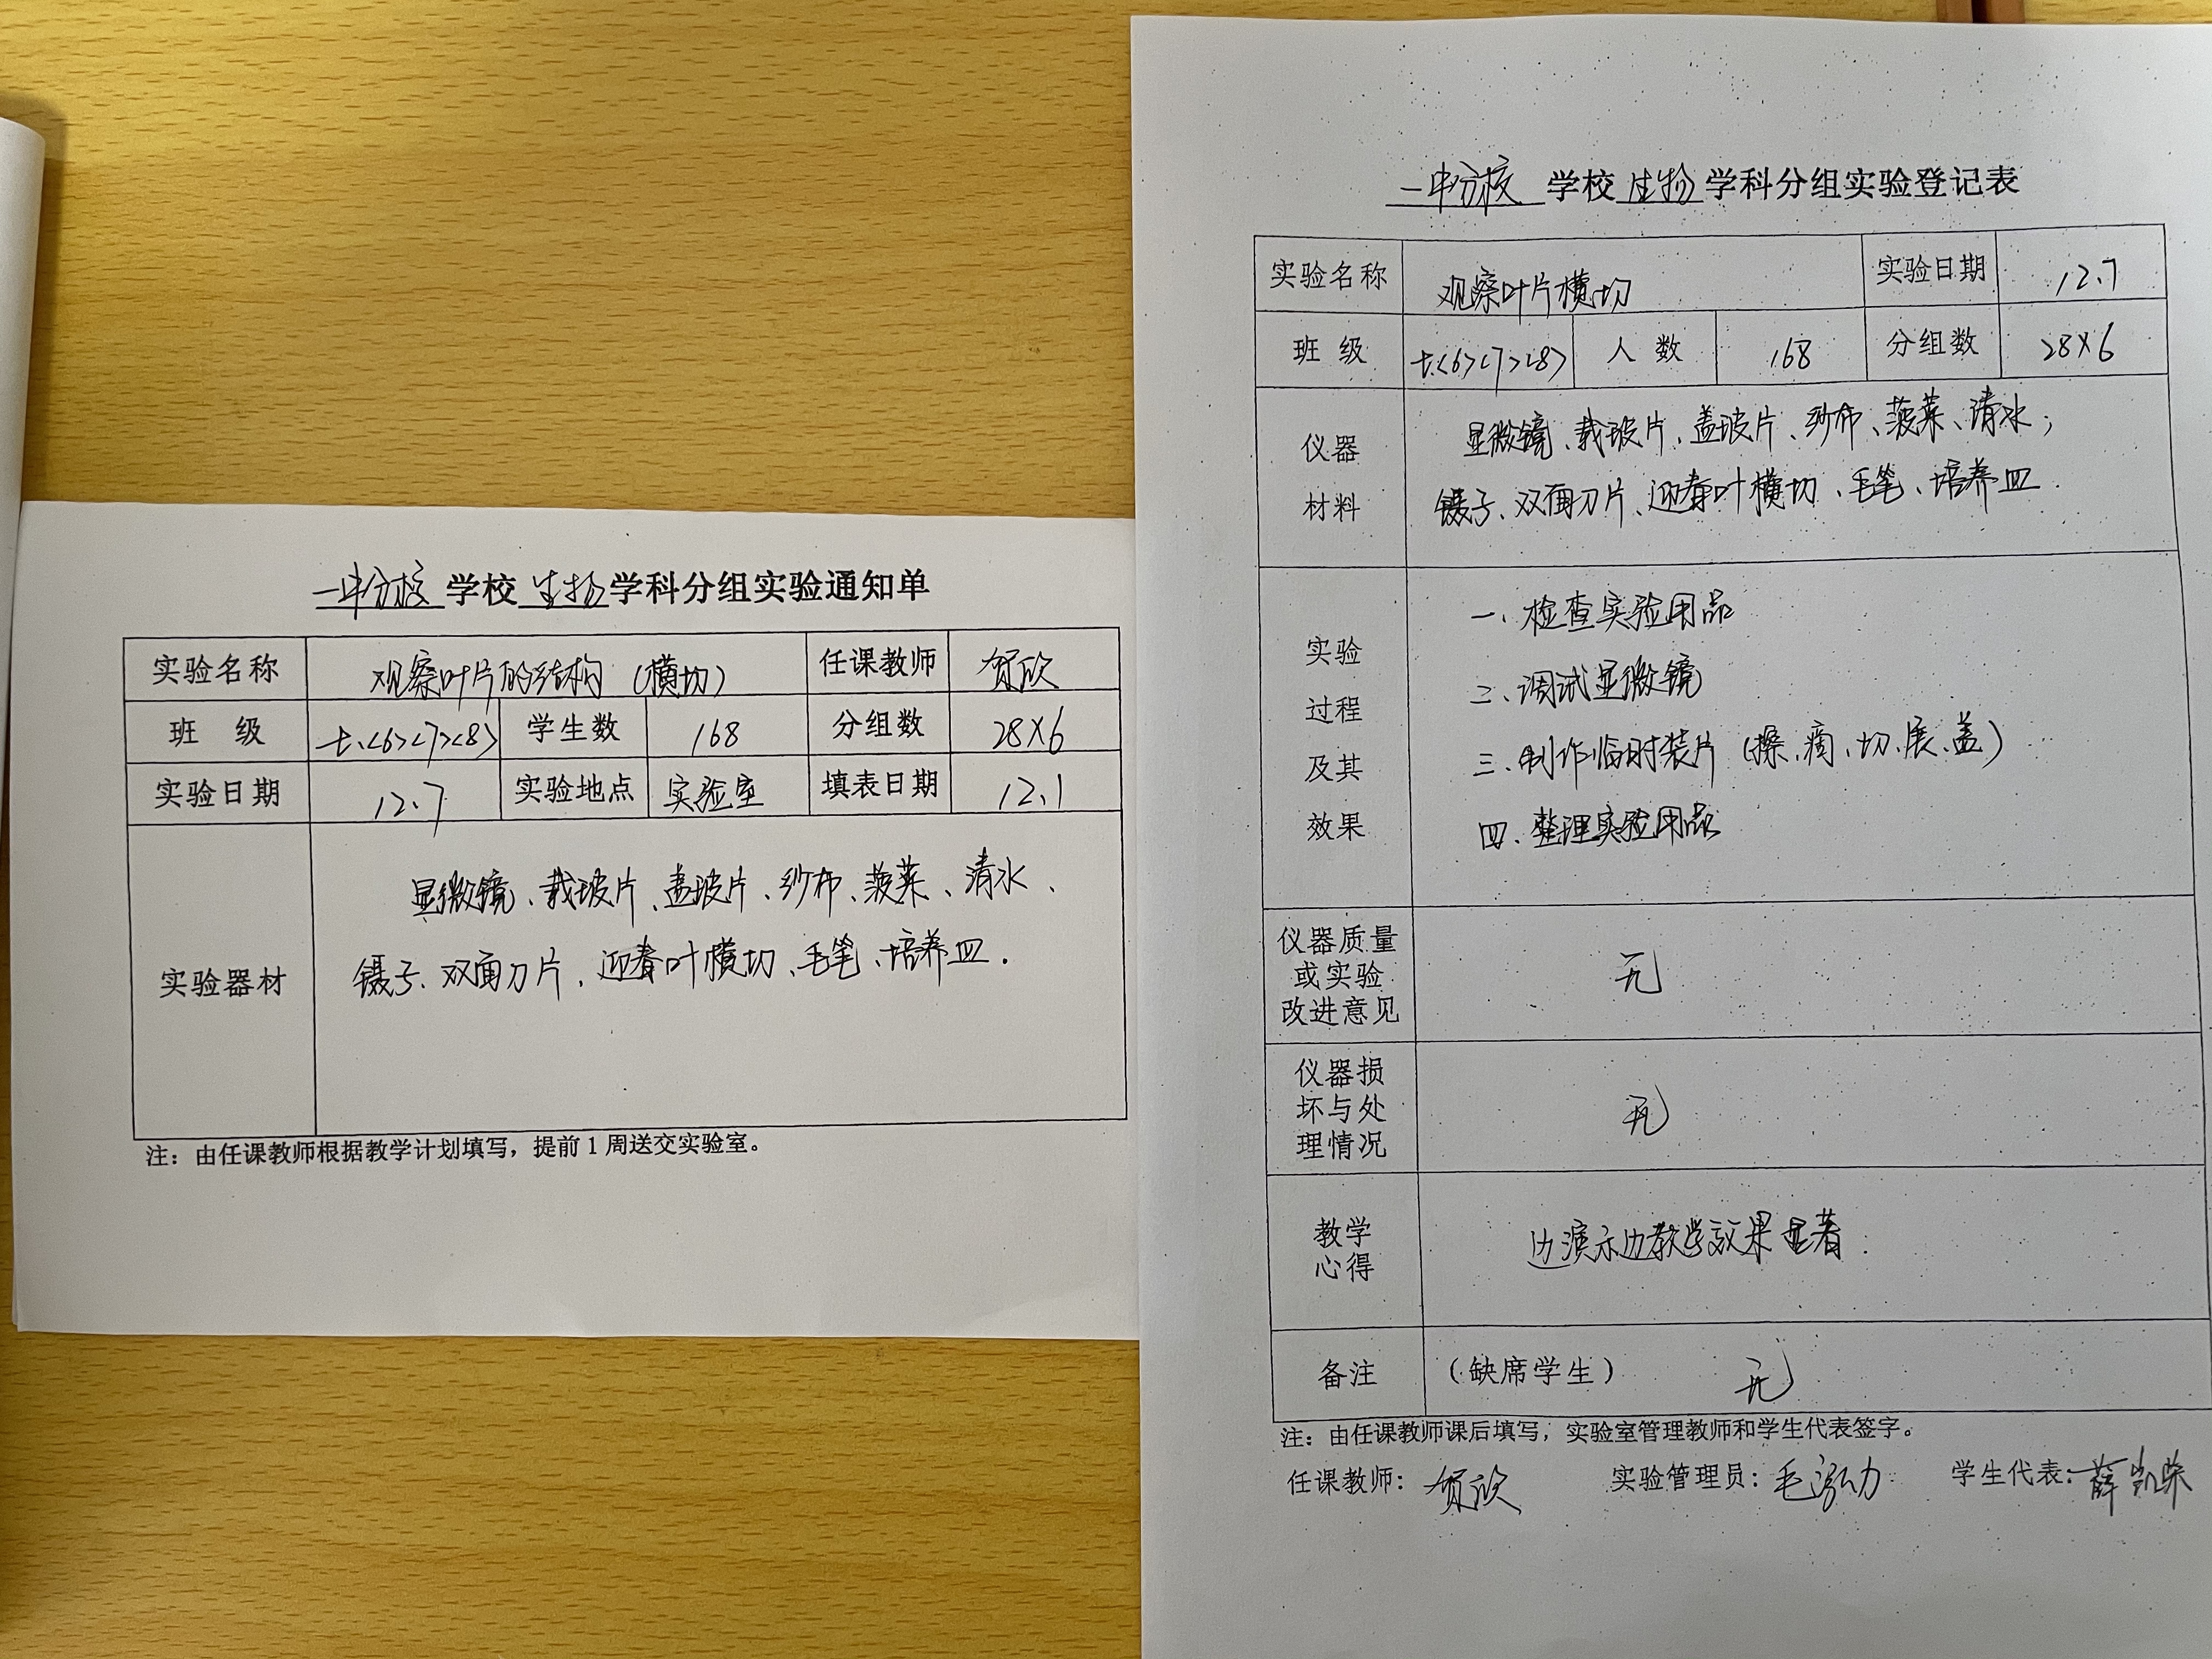 一中分校 学校 生物 学科分组实验通知单
实验名称 观察叶片的结构（横切） 任课教师 贺欣
班 级 七.<6><7><8> 学生数 168 分组数 28×6
实验日期 12.7 实验地点 实验室 填表日期 12.1
实验器材
显微镜、载玻片、盖玻片、纱布、菠菜、清水、
镊子、双面刀片、迎春叶横切、毛笔、培养皿.
注：由任课教师根据教学计划填写，提前1周送交实验室。
一中分校 学校 生物 学科分组实验登记表
实验名称 观察叶片横切 实验日期 12.7
班 级 七.<6><7><8> 人 数 168 分组数 28×6
仪器
材料
显微镜、载玻片、盖玻片、纱布、菠菜、清水；
镊子、双面刀片、迎春叶横切、毛笔、培养皿.
实验
过程
及其
效果
一、检查实验用品
二、调试显微镜
三、制作临时装片（擦、滴、切、展、盖）
四、整理实验用品
仪器质量
或实验
改进意见
无
仪器损
坏与处
理情况
无
教学
心得
边演示边教学效果显著.
备注 （缺席学生） 无
注：由任课教师课后填写，实验室管理教师和学生代表签字。
任课教师：贺欣 实验管理员：毛泓力 学生代表：薛凯